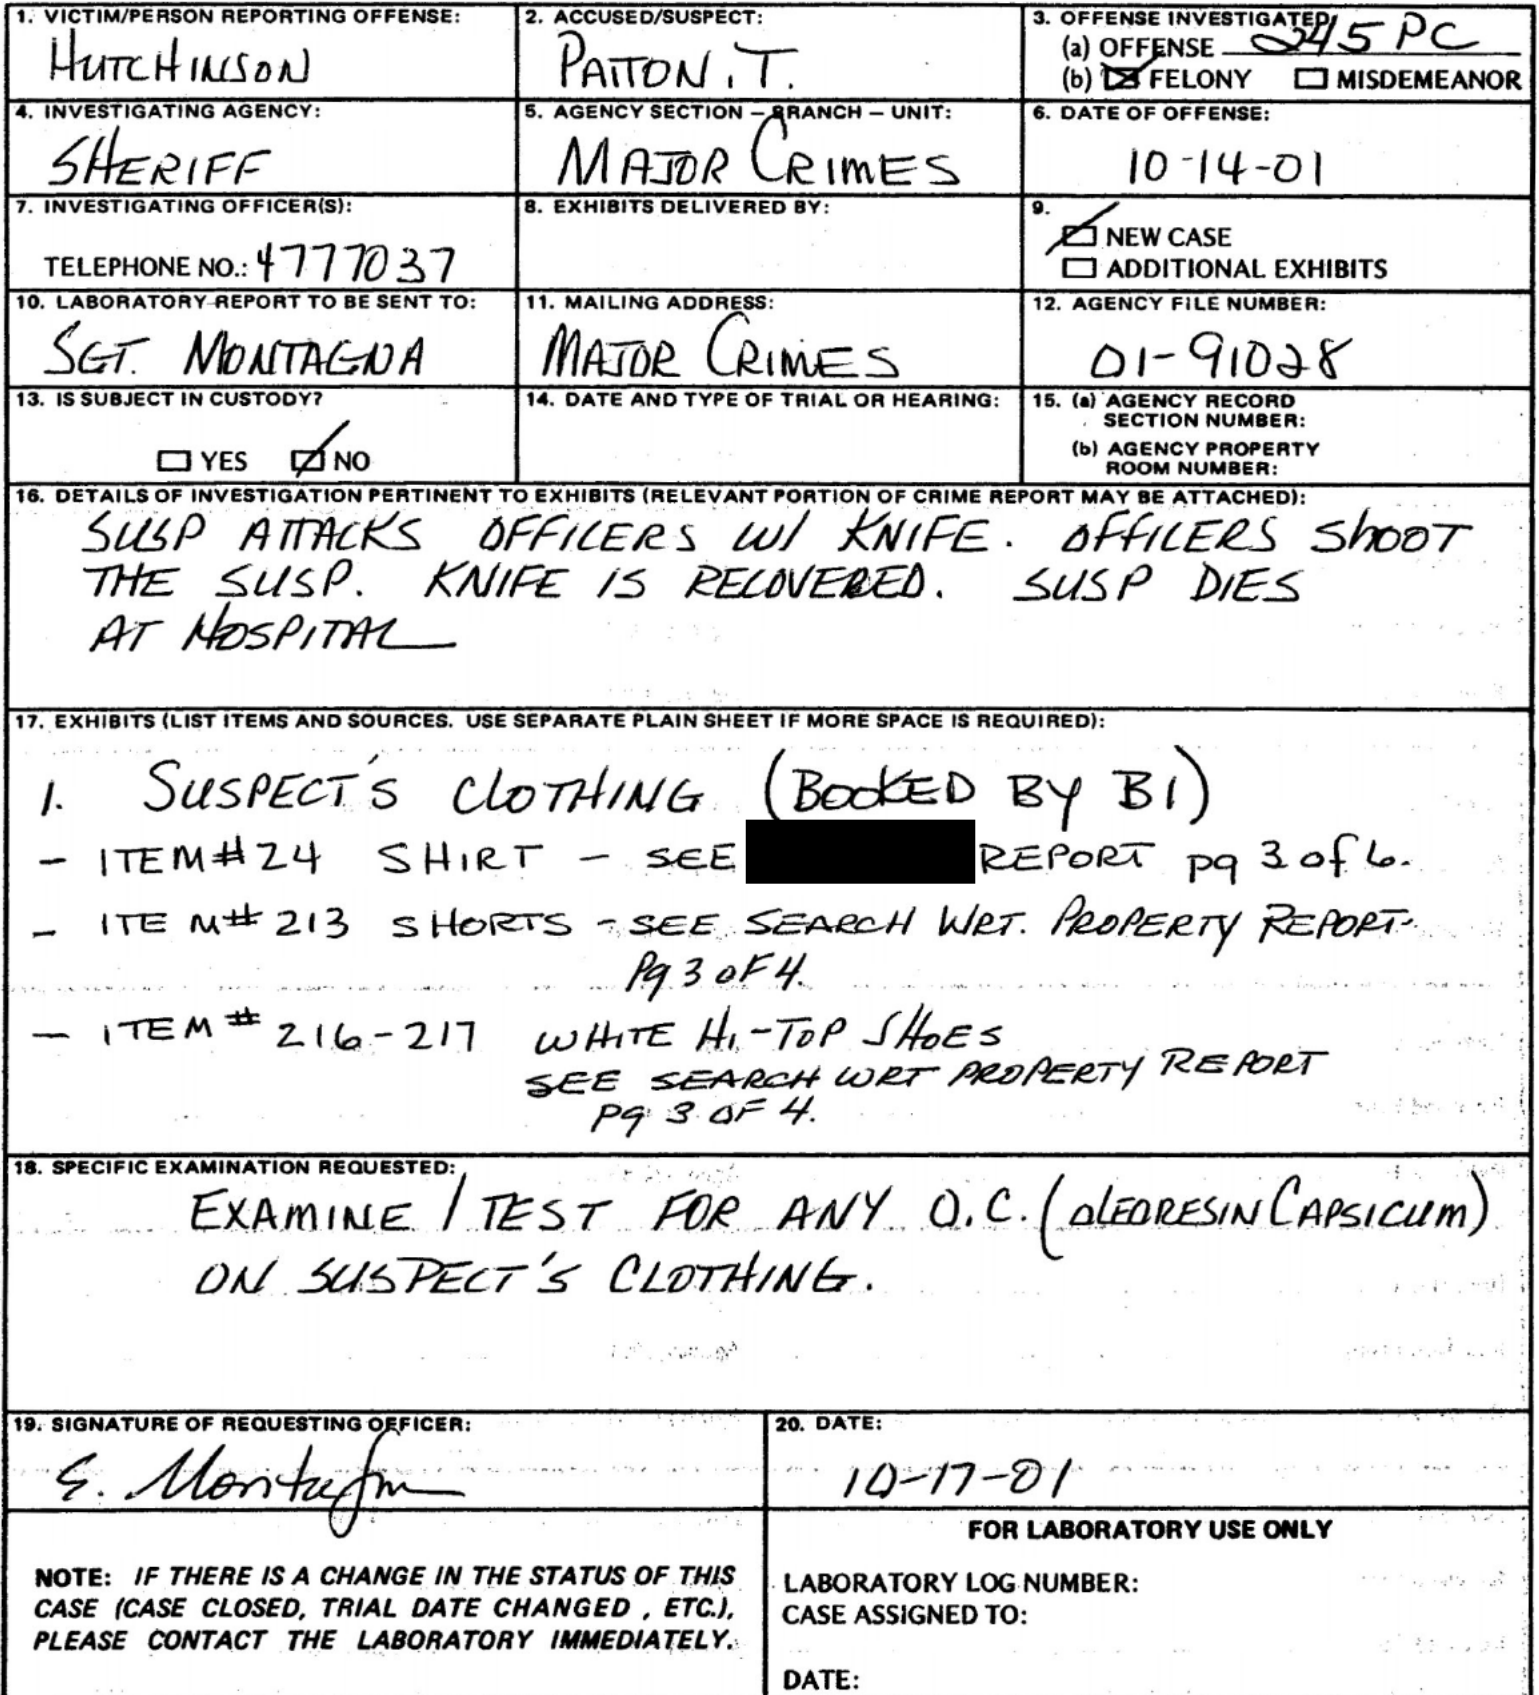 1. VICTIM/PERSON REPORTING OFFENSE:
HUTCHINSON
2. ACCUSED/SUSPECT:
PATTON, T.
3. OFFENSE INVESTIGATED
(a) OFFENSE 245 PC
(b) FELONY MISDEMEANOR
4. INVESTIGATING AGENCY:
SHERIFF
5. AGENCY SECTION – BRANCH – UNIT:
MAJOR CRIMES
6. DATE OF OFFENSE:
10-14-01
7. INVESTIGATING OFFICER(S):
TELEPHONE NO.: 4777037
8. EXHIBITS DELIVERED BY:
9.
NEW CASE
ADDITIONAL EXHIBITS
10. LABORATORY REPORT TO BE SENT TO:
SGT. MONTAGNA
11. MAILING ADDRESS:
MAJOR CRIMES
12. AGENCY FILE NUMBER:
01-91028
13. IS SUBJECT IN CUSTODY?
YES NO
14. DATE AND TYPE OF TRIAL OR HEARING:
15. (a) AGENCY RECORD
SECTION NUMBER:
(b) AGENCY PROPERTY
ROOM NUMBER:
16. DETAILS OF INVESTIGATION PERTINENT TO EXHIBITS (RELEVANT PORTION OF CRIME REPORT MAY BE ATTACHED):
SUSP ATTACKS OFFICERS W/ KNIFE. OFFICERS SHOOT
THE SUSP. KNIFE IS RECOVERED. SUSP DIES
AT HOSPITAL
17. EXHIBITS (LIST ITEMS AND SOURCES. USE SEPARATE PLAIN SHEET IF MORE SPACE IS REQUIRED):
1. SUSPECT'S CLOTHING (BOOKED BY BI)
- ITEM#24 SHIRT - SEE REPORT pg 3 of 6.
- ITEM# 213 SHORTS - SEE SEARCH WRT. PROPERTY REPORT-
Pg 3 OF 4.
- ITEM# 216-217 WHITE HI-TOP SHOES
SEE SEARCH WRT PROPERTY REPORT
pg 3 OF 4.
18. SPECIFIC EXAMINATION REQUESTED:
EXAMINE / TEST FOR ANY O.C. (OLEORESIN CAPSICUM)
ON SUSPECT'S CLOTHING.
19. SIGNATURE OF REQUESTING OFFICER:
E. Montagna
20. DATE:
10-17-01
NOTE: IF THERE IS A CHANGE IN THE STATUS OF THIS
CASE (CASE CLOSED, TRIAL DATE CHANGED , ETC.),
PLEASE CONTACT THE LABORATORY IMMEDIATELY.
FOR LABORATORY USE ONLY
LABORATORY LOG NUMBER:
CASE ASSIGNED TO:
DATE: